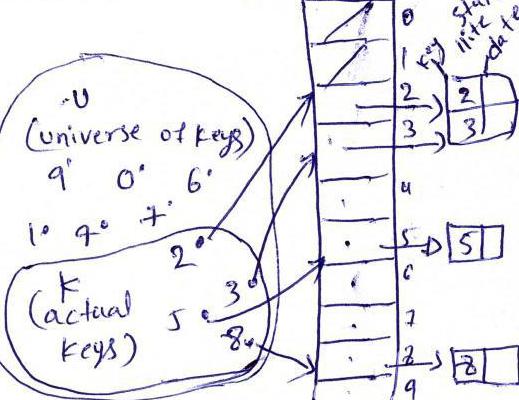 U
(universe of keys)
9 0 6
1 4 7
2
K
(actual
keys)
3
5
8
0
1
2
3
4
5
6
7
8
9
key
satellite
data
2
3
5
8